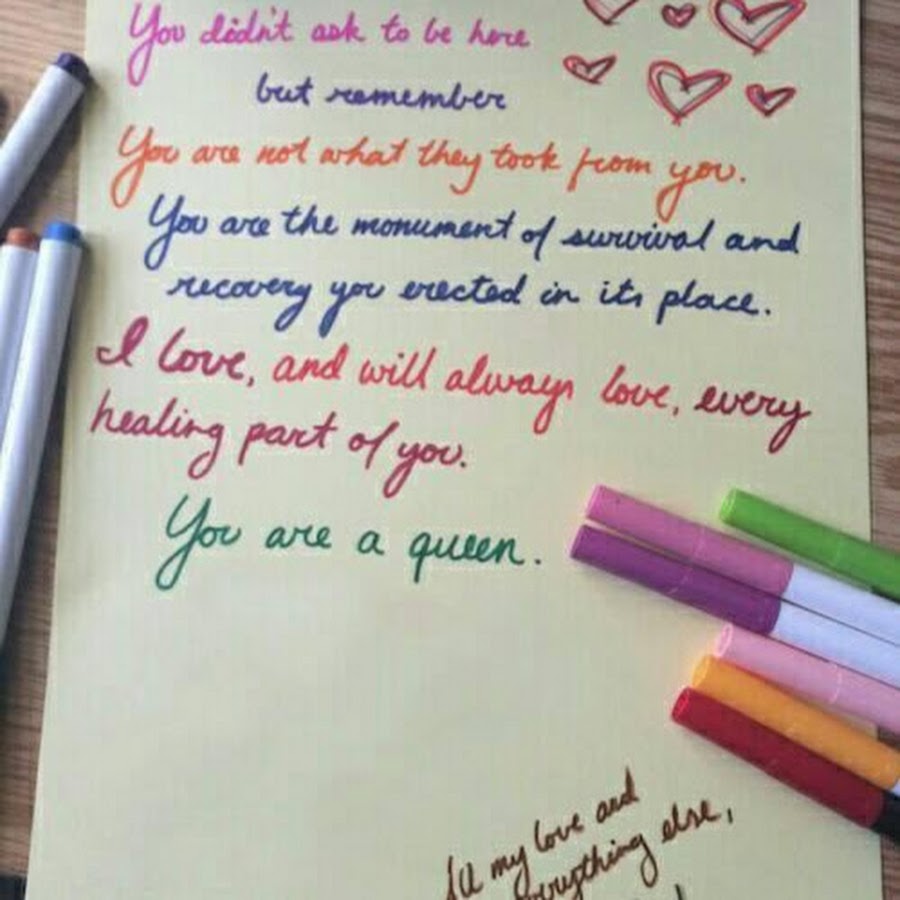 You didn't ask to be here
but remember
You are not what they took from you.
You are the monument of survival and
recovery you erected in its place.
I love, and will always love, every
healing part of you.
You are a queen.
All my love and
everything else,